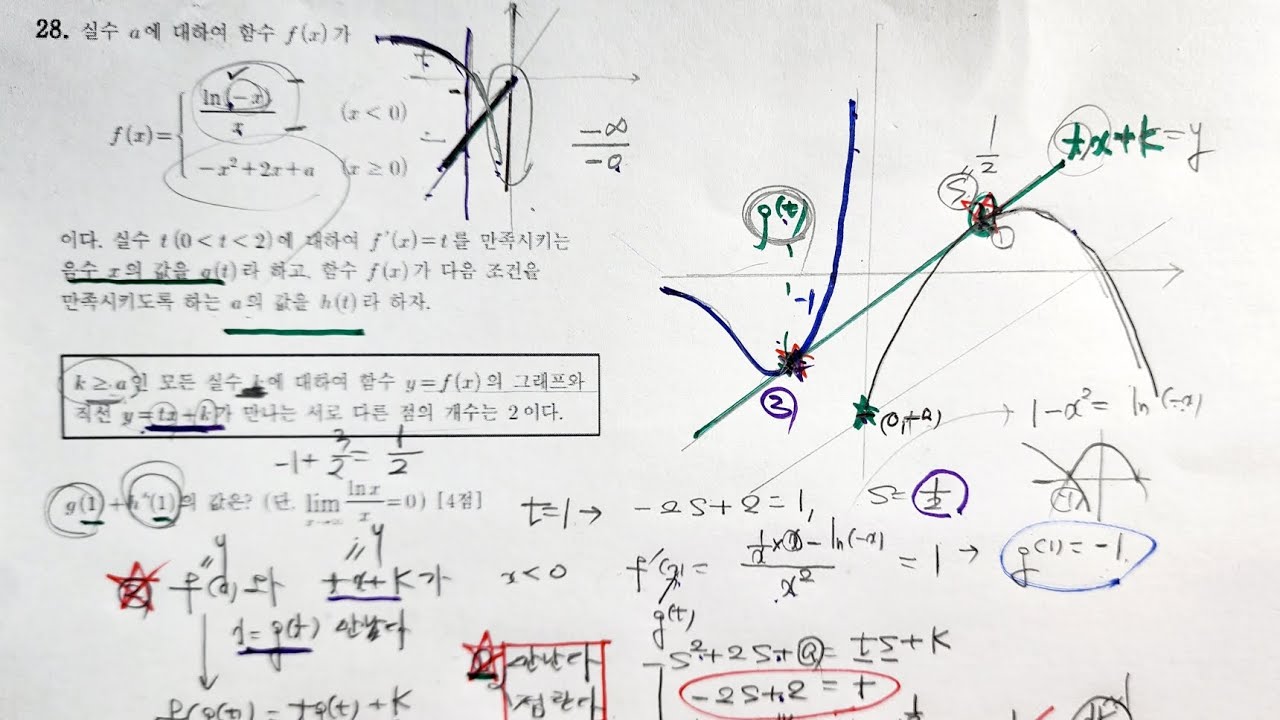 28. 실수 a에 대하여 함수 f(x)가
f(x)= { ln(-x)/x (x<0)
-x²+2x+a (x≥0)
-∞/-0
이다. 실수 t(0<t<2)에 대하여 f'(x)=t를 만족시키는
음수 x의 값을 g(t)라 하고, 함수 f(x)가 다음 조건을
만족시키도록 하는 a의 값을 h(t)라 하자.
k≥a인 모든 실수 k에 대하여 함수 y=f(x)의 그래프와
직선 y=tx+k가 만나는 서로 다른 점의 개수는 2이다.
-1+3/2=1/2
g(1)+h'(1)의 값은? (단, lim x→∞ ln x/x=0) [4점]
g(t)
-1
②
1/2
S
①
tx+k=y
(0,+a)
1-x²=ln(-x)
-1
t=1→ -2s+2=1, s=1/2
x<0 f'(x)= (1/x × x - ln(-x))/x² =1 → g(1)=-1.
g(t)
② f(x)와 tx+k가
y y
x=g(t) 만났다
f(g(t))=tg(t)+k
만난다
접한다
-s²+2s+a=ts+k
-2s+2=t